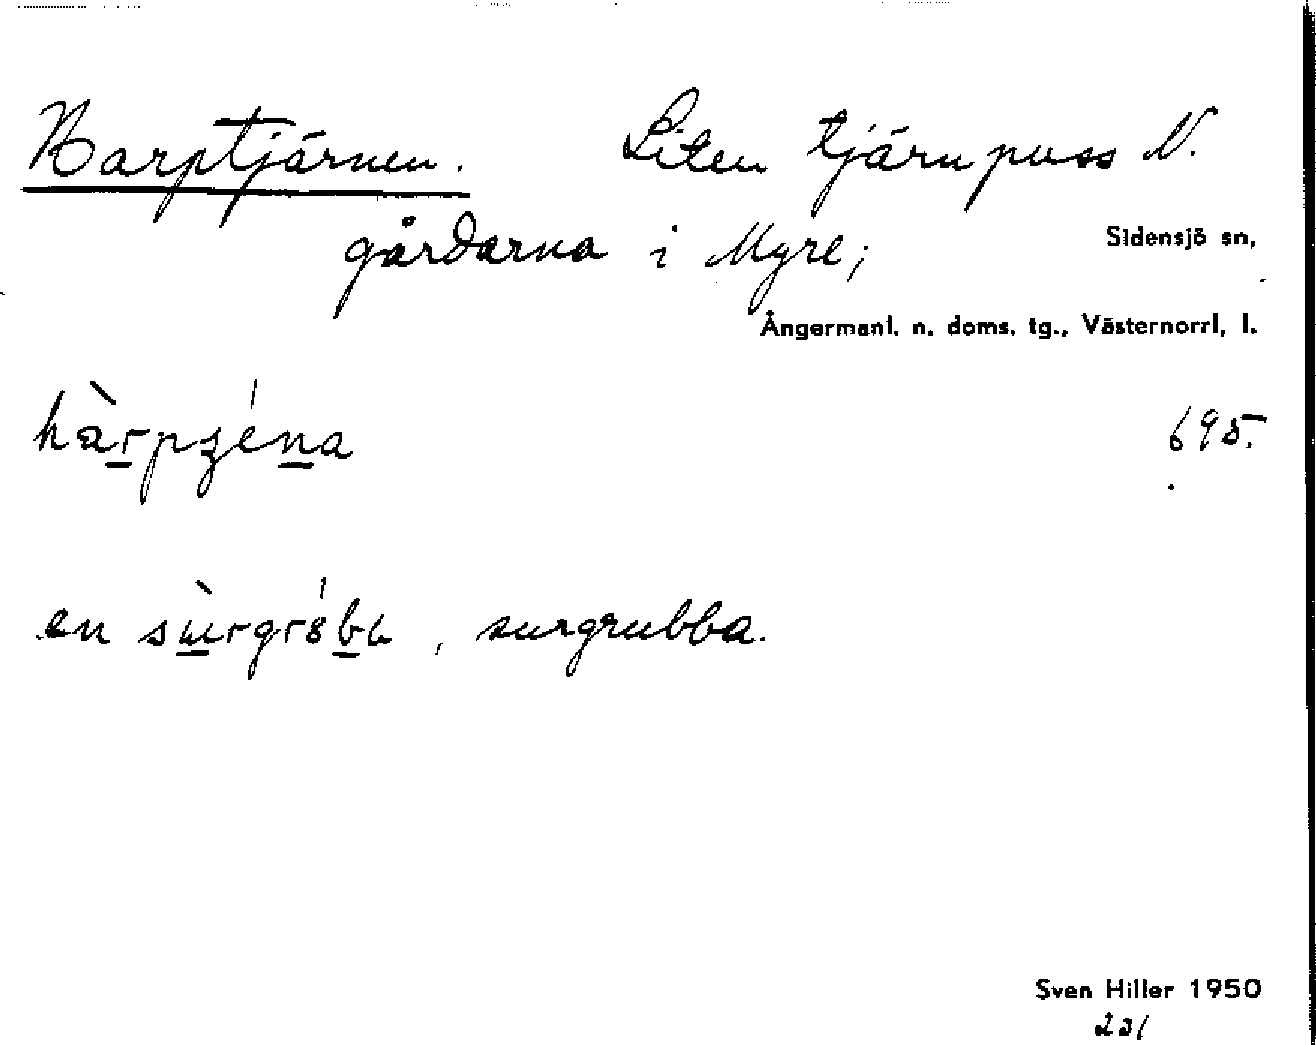 Harptjärnen. Liten tjärnpuss N.
gårdarna i Myre; Sidensjö sn,
Ångermanl. n. doms. tg., Västernorrl, l.
695.
en , surgrubba.
Sven Hiller 1950
231